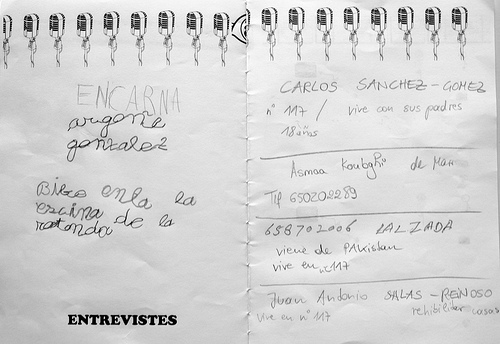 ENCARNA
argente
gonzalez
Bibo enla la
escina de la
rotonda
ENTREVISTES
CARLOS SANCHEZ-GOMEZ
nº 117 / vive con sus padres
18 años
Asmaa de
Tlf 650202289
658702006 LALZADA
viene de PAKistan
vive en nº117
Juan Antonio SALAS-REINOSO
vive en nº 117 rehibiliter casas